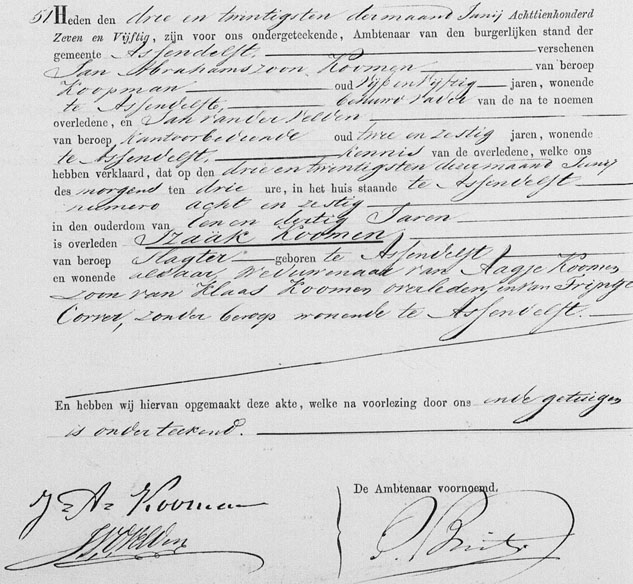 51 Heden den drie en twintigsten dermaand Junij Achttienhonderd
Zeven en Vijftig, zijn voor ons ondergeteekende, Ambtenaar van den burgerlijken stand der
gemeente Assendelft verschenen
Jan Abrahamszoon Koomen van beroep
Koopman oud Vijf en Vijftig jaren, wonende
te Assendelft, behuwd vader van de na te noemen
overledene, en Jan van der Velden
van beroep Kantoorbediende oud twee en zestig jaren, wonende
te Assendelft, Kennis van de overledene, welke ons
hebben verklaard, dat op den drie en twintigsten dezer maand Junij
des morgens ten drie ure, in het huis staande te Assendelft
numero acht en zestig
in den ouderdom van Een en dertig Jaren
is overleden Izaäk Koomen,
van beroep Slagter geboren te Assendelft
en wonende aldaar, Weduwenaar van Aagje Koomen
zoon van Klaas Koomen overleden, en van Trijntje
Corver, zonder beroep wonende te Assendelft.
En hebben wij hiervan opgemaakt deze akte, welke na voorlezing door ons en de getuigen
is onderteekend.
De Ambtenaar voornoemd.
J. Az Koomen
JVDVelden